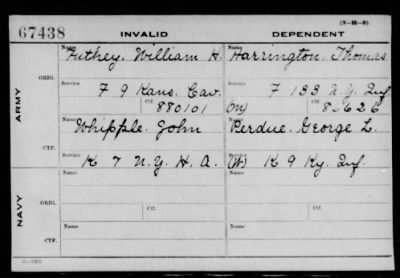 (3-H-5)
67438 INVALID DEPENDENT
Name Futhey, William H. Name Harrington, Thomas
ORIG.
Service F 9 Kans. Cav. Service F 133 N.Y. Inf.
Ctf. 880101 (M) Ctf.
ARMY
Name Whipple, John Name Perdue, George L.
CTF.
Service K 7 N.Y. H. A. Service (W) K 9 Ky. Inf.
Name Ctf. Name Ctf.
ORIG.
NAVY
Name Name
CTF.